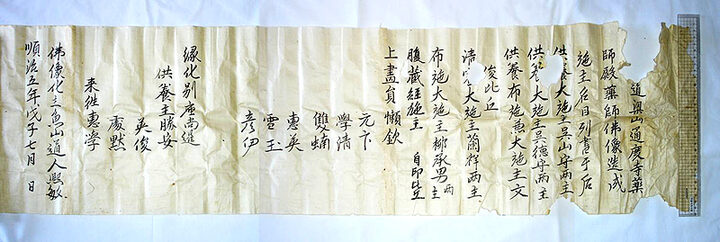 興山通度寺藥
師殿藥師佛像造成
施主名目列書于后
供養大施主吳山守兩主
供養大施主吳德守兩主
供養布施魚大施主文
俊比丘
大施主蘭梓兩主
布施大施主柳承男兩主
腹藏經施主 自印
上畫員 懶欽
元卞
學清
雙蝻
惠英
雪玉
彦伊
緣化別座尚進
供養主勝安
英俊
處默
來往惠學
佛像化主魚山道人熙敏
順治五年戊子七月 日